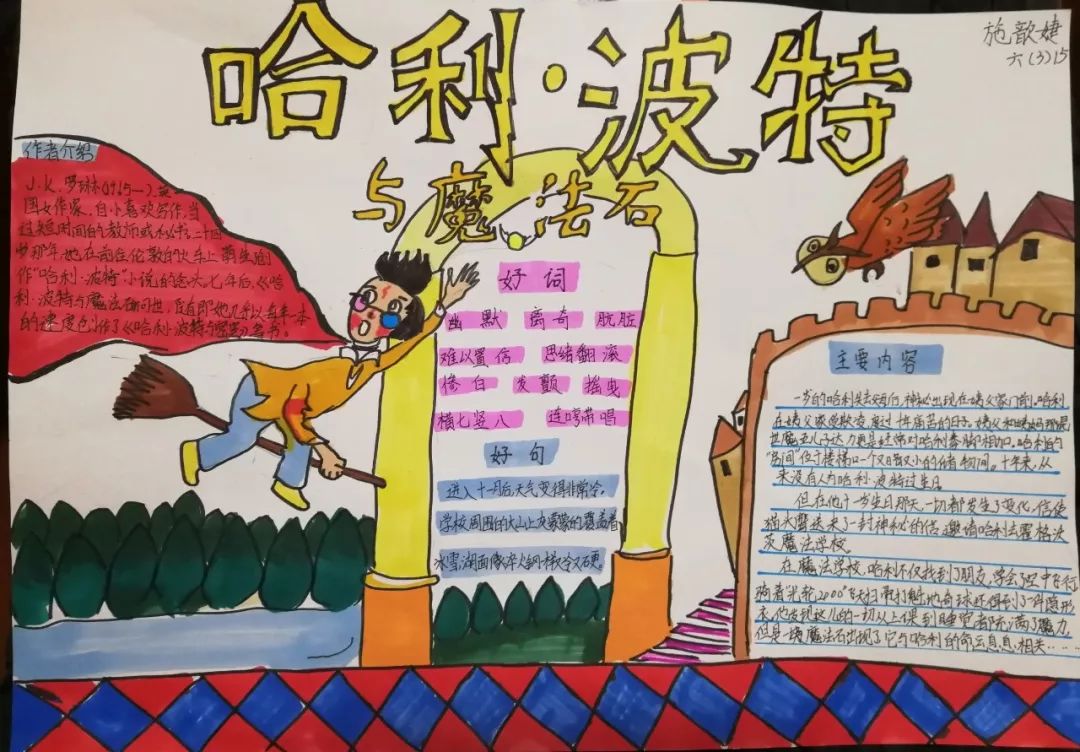 哈利·波特
与魔法石
施歆婕
六(3)15
作者介绍
J.K.罗琳(1965—),英
国女作家,自小喜欢写作,当
过短时间的教师或秘书,二十四
岁那年,她在前往伦敦的火车上萌生创
作"哈利·波特"小说的念头。七年后,《哈
利·波特与魔法石》问世,
的速度创作了《哈利·波特与密室》等书。
好词
幽默 离奇 肮脏
难以置信 思绪翻滚
发颤 摇曳
横七竖八 连哼带唱
好句
进入十一月后,天气变得非常冷。
学校周围的大山上灰蒙蒙的覆盖着
冰雪,湖面像淬火钢一样冷又硬。
主要内容
一岁的哈利失去父母后,神秘出现在姨父家门前,哈利
在姨父家受欺凌,度过十年痛苦的日子。姨父和姨妈
哈利的
"房间"位于楼梯口一个又暗又小的储物间。十年来,从
来没有人为哈利·波特过生日。
但在他十一岁生日那天,一切都发生了变化,信使
猫头鹰送来了一封神秘的信,邀请哈利去霍格沃
茨魔法学校。
在魔法学校,哈利不仅找到了朋友,学会了空中飞行,
骑着光轮2000飞天扫帚打魁地奇球,还得到了一件隐形
衣,他发现这儿的一切从上课到睡觉者除满了魔力,
但是一块魔法石出现了,它与哈利的命运息息相关……